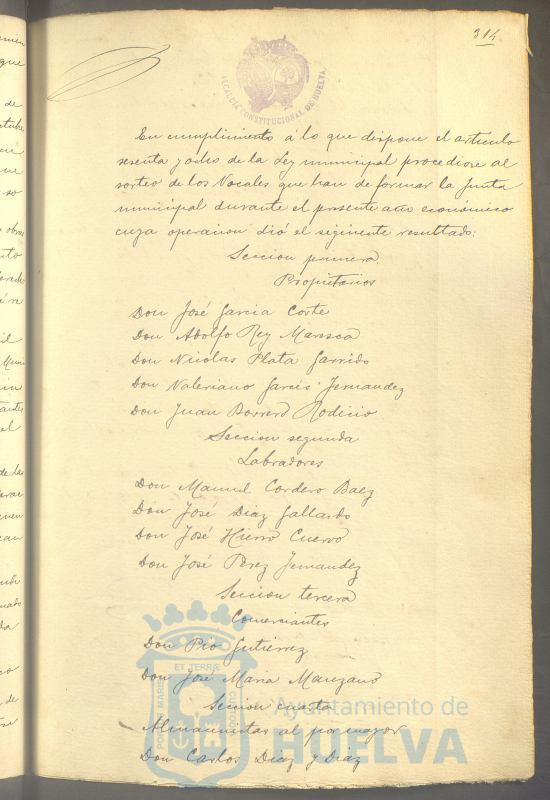 314
ALCALDIA CONSTITUCIONAL DE HUELVA
En cumplimiento á lo que dispone el artículo
sesenta y ocho de la Ley municipal procediose al
sorteo de los Vocales que han de formar la Junta
municipal durante el presente año económico
cuya operacion dió el siguiente resultado:
Seccion primera
Propietarios
Don José Garcia Corte
Don Adolfo Rey
Don Nicolas Plata Garrido
Don Valeriano Garcés Fernandez
Don Juan Borrero Rodicio
Seccion segunda
Labradores
Don Manuel Cordero Baez
Don José Diaz Gallardo
Don José Hierro Cuervo
Don José Perez Fernandez
Seccion tercera
Comerciantes
Don Pio Gutierrez
Don José Maria Manzano
Seccion cuarta
Almacenistas al por mayor
Don Carlos Diaz y Diaz
PORTUS MARIS ET TERRÆ CUSTODIA
Ayuntamiento de
HUELVA